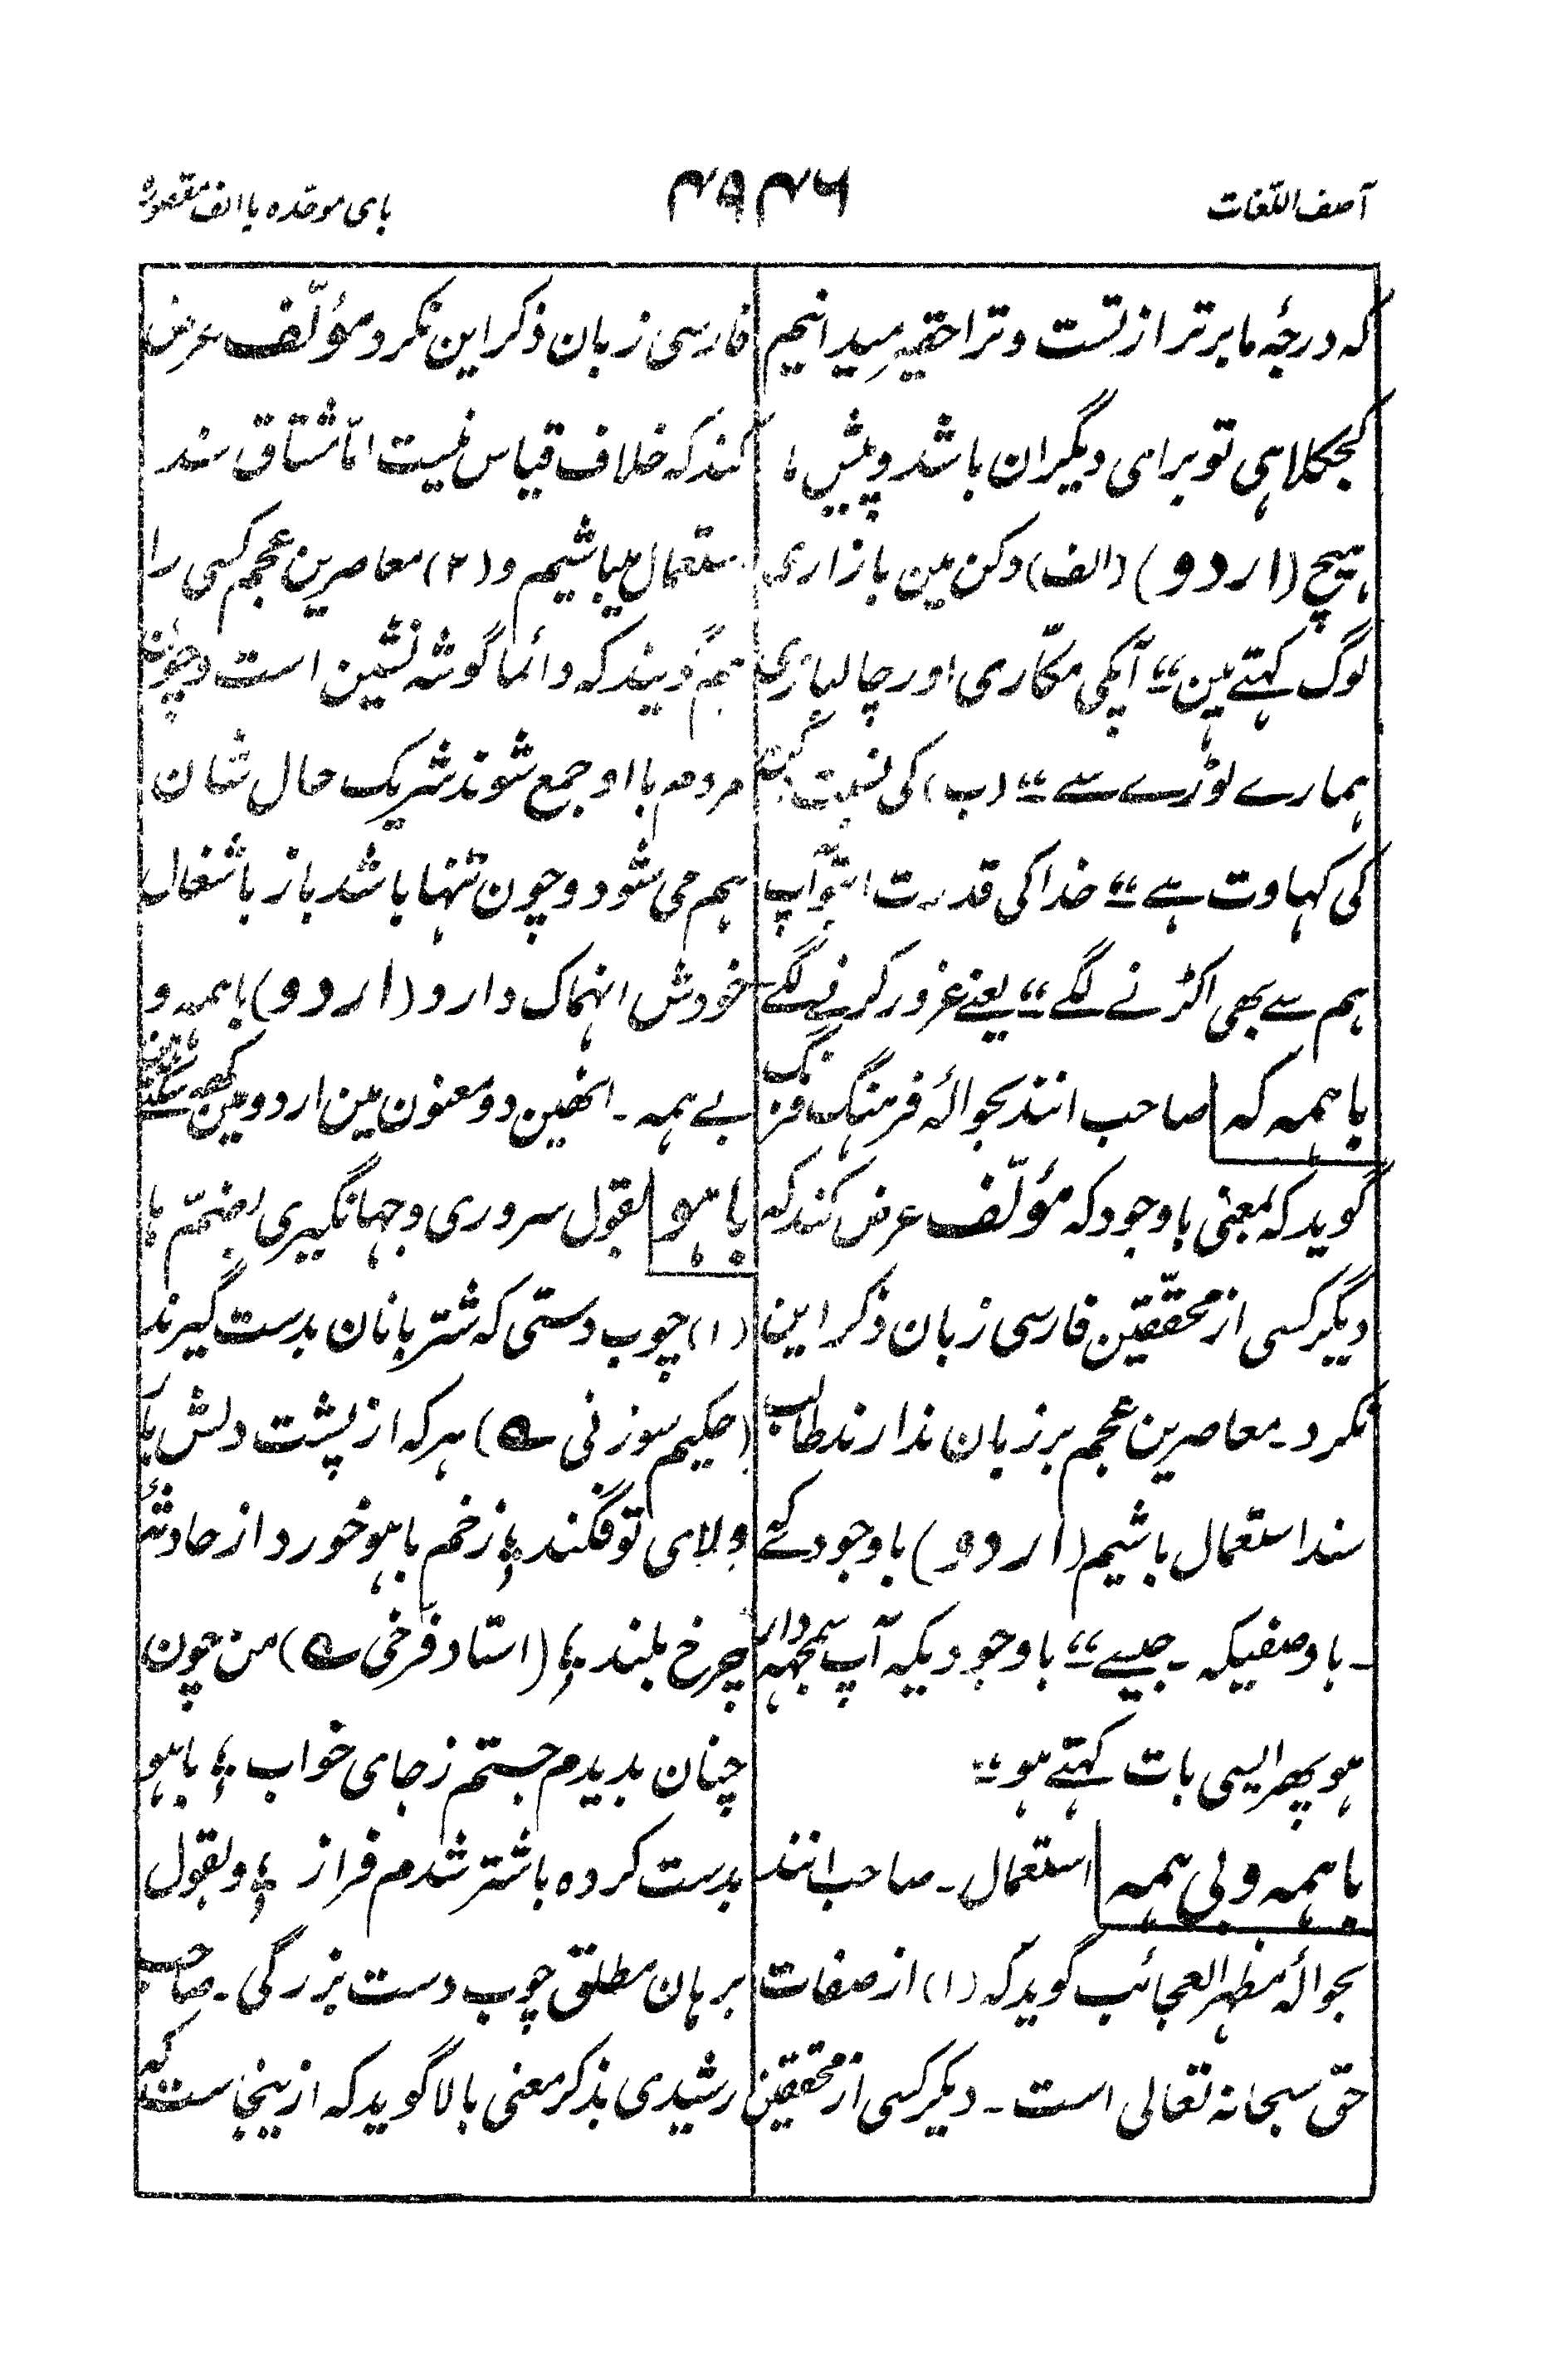 آصف اللّغات
۴۹۴۶
بای موحّده با الف مقصورہ
که درجهٔ ما برتر از تست و ترا حقیر میدانیم
کجکلاهی تو برای دیگران باشد و پیش ما
هیچ (اردو) (الف) دکن مین بازاری
لوگ کہتے ہین ‟ آپکی مکّاری اور چالبازی
ہمارے لوڑے سے ‟ (ب) کی نسبت
کی کہاوت ہے ‟ خدا کی قدرت اتو آپ
ہم سے بھی اکڑنے لگے ‟ یعنے غرور کرنے لگے
باهمه که صاحب انند بحوالهٔ فرهنگ فرنگ
گوید که بمعنی باوجود که مؤلّف عرض کند که
دیگر کسی از محقّقین فارسی زبان ذکر این
نکرد ۔ معاصرین عجم بر زبان ندارند طالب
سند استعمال باشیم (اردو) باوجودیکے
۔ باوصفیکہ ۔ جیسے ‟ باوجودیکہ آپ سمجھہ دار
ہو پھر ایسی بات کہتے ہو ‟
باهمه و بی همه استعمال ۔ صاحب انند
بحوالهٔ مظہر العجائب گوید که (۱) از صفات
حقّ سبحانه تعالی است ۔ دیگر کسی از محققین
فارسی زبان ذکر این نکرد و مؤلّف عرض
کند که خلاف قیاس نیست امّا مشتاق سند
استعمال میباشیم و (۲) معاصرین عجم کسی را
هم گویند که دائما گوشه نشین است و چون
مردم با او جمع شوند شریک حال شان
هم می شود و چون تنها باشد باز باشغال
خودش انہماک دارد (اردو) باہمہ و
بے ہمہ ۔ انھین دو معنون مین اردو مین کہہ سکتے ہین
باهو بقول سروری و جہانگیری بضمّ ہا
(۱) چوب دستی که شتر بانان بدست گیرند
(حکیم سوزنی ؎) هر که از پشت دلش بار
ولای تو فگند ؛ زخم باهو خورد از حادثهٔ
چرخ بلند ؛ (استاد فرخی ؎) من چون
چنان بدیدم جستم ز جای خواب ؛ باهو
بدست کرده با شتر شدم فراز ؛ و بقول
برهان مطلق چوب دست بزرگی ۔ صاحب
رشیدی بذکر معنی بالا گوید که ازینجاست که